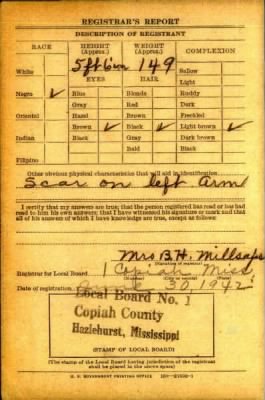 REGISTRAR'S REPORT
DESCRIPTION OF REGISTRANT
RACE HEIGHT (Approx.) WEIGHT (Approx.) COMPLEXION
White 5ft6in 149 Sallow
EYES HAIR Light
Negro ✓ Blue Blonde Ruddy
Gray Red Dark
Oriental Hazel Brown Freckled
Brown ✓ Black ✓ Light brown ✓
Indian Black Gray Dark brown
Bald Black
Filipino
Other obvious physical characteristics that will aid in identification
Scar on left Arm
I certify that my answers are true; that the person registered has read or has had
read to him his own answers; that I have witnessed his signature or mark and that
all of his answers of which I have knowledge are true, except as follows:
Mrs B.H. Millsaps
(Signature of registrar)
Registrar for Local Board 1 Copiah Miss.
Date of registration 30, 1942
Local Board No. 1
Copiah County
Hazlehurst, Mississippi
(STAMP OF LOCAL BOARD)
(The stamp of the Local Board having jurisdiction of the registrant
shall be placed in the above space)
U. S. GOVERNMENT PRINTING OFFICE